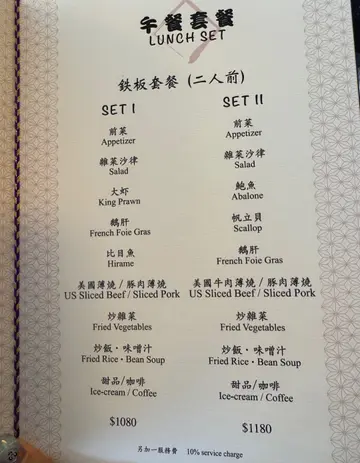 午餐套餐
LUNCH SET
鉄板套餐 (二人前)
SET I
前菜
Appetizer
雜菜沙律
Salad
大虾
King Prawn
鵝肝
French Foie Gras
比目魚
Hirame
美國薄燒 / 豚肉薄燒
US Sliced Beef / Sliced Pork
炒雜菜
Fried Vegetables
炒飯・味噌汁
Fried Rice・Bean Soup
甜品/咖啡
Ice-cream / Coffee
$1080
SET II
前菜
Appetizer
雜菜沙律
Salad
鮑魚
Abalone
帆立貝
Scallop
鵝肝
French Foie Gras
美國牛肉薄燒 / 豚肉薄燒
US Sliced Beef / Sliced Pork
炒雜菜
Fried Vegetables
炒飯・味噌汁
Fried Rice・Bean Soup
甜品/咖啡
Ice-cream / Coffee
$1180
另加一服務費 10% service charge